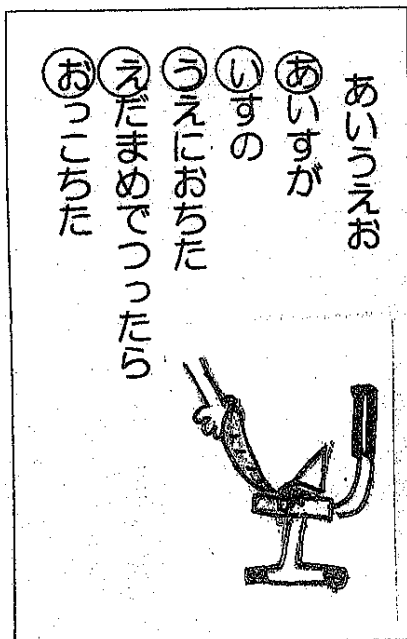 あいうえお
あいすが
いすの
うえにおちた
えだまめでつったら
おっこちた